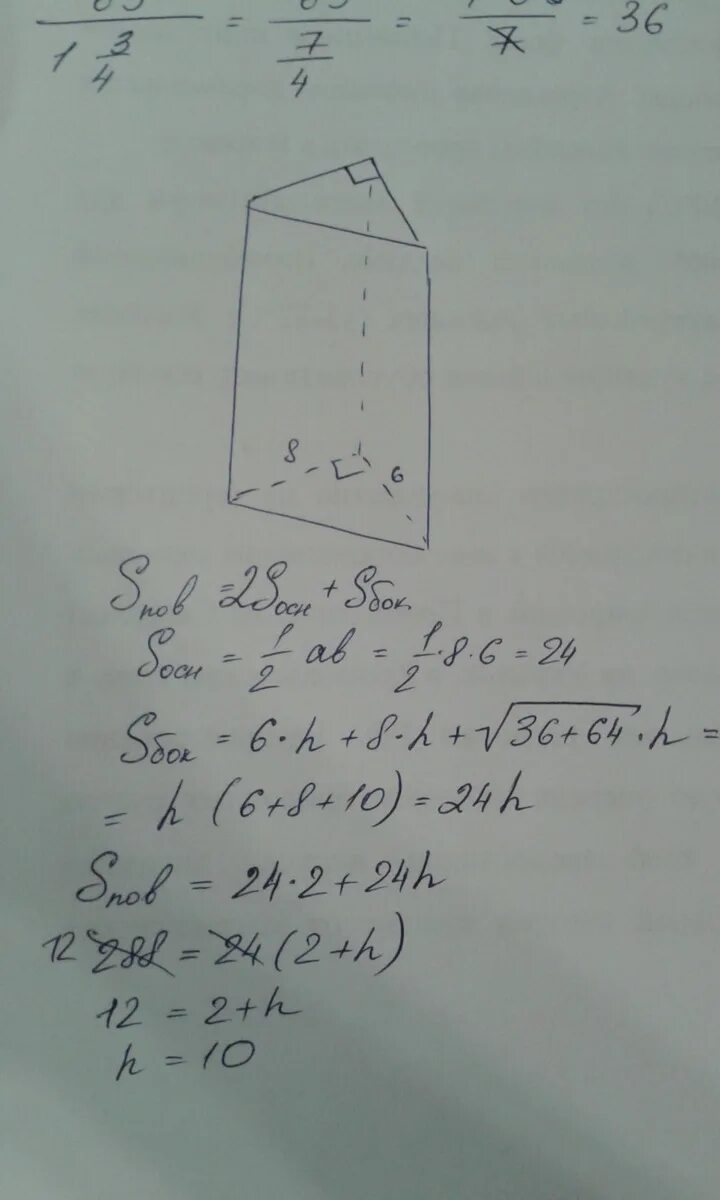 1 3/4 = 7/4 = 7 = 36
8
6
Sпов = 2Sосн + Sбок
Sосн = 1/2 ab = 1/2 · 8 · 6 = 24
Sбок = 6 · h + 8 · h + √36+64 · h =
= h (6+8+10) = 24h
Sпов = 24 · 2 + 24h
12 288 = 24 (2+h)
12 = 2+h
h = 10